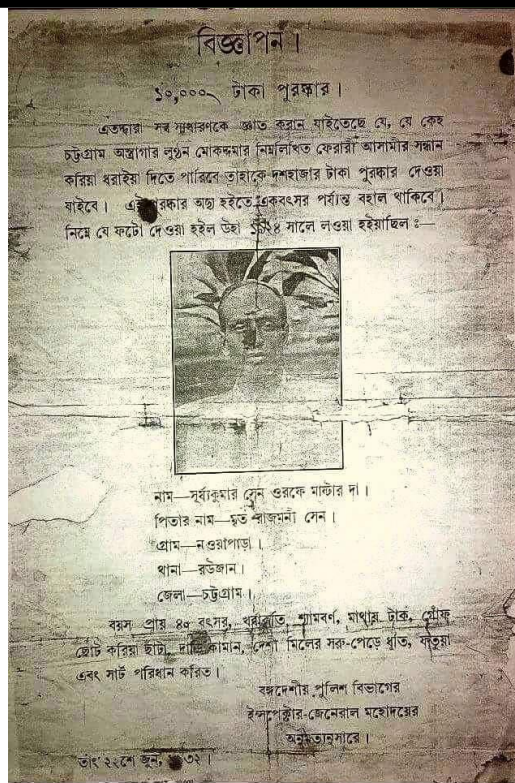 বিজ্ঞাপন।
১০,০০০৲ টাকা পুরষ্কার।
এতদ্বারা সর্ব সাধারণকে জ্ঞাত করান যাইতেছে যে, যে কেহ
চট্টগ্রাম অস্ত্রাগার লুণ্ঠন মোকদ্দমার নিম্নলিখিত ফেরারী আসামীর সন্ধান
করিয়া ধরাইয়া দিতে পারিবে তাহাকে দশহাজার টাকা পুরষ্কার দেওয়া
যাইবে। এই পুরষ্কার অদ্য হইতে একবৎসর পর্য্যন্ত বহাল থাকিবে।
নিম্নে যে ফটো দেওয়া হইল উহা ১৯২৪ সালে লওয়া হইয়াছিল ঃ—
নাম—সূর্য্যকুমার সেন ওরফে মাষ্টার দা।
পিতার নাম—মৃত রাজমনী সেন।
গ্রাম—নওয়াপাড়া।
থানা—রউজান।
জেলা—চট্টগ্রাম।
বয়স প্রায় বৎসর, খর্ব্বাকৃতি, শ্যামবর্ণ, মাথায় টাক, গোঁফ
ছোট করিয়া ছাঁটা, দাড়ি কামান, দেশী মিলের সরু-পেড়ে ধুতি, ফতুয়া
এবং সার্ট পরিধান করিত।
বঙ্গদেশীয় পুলিশ বিভাগের
ইন্সপেক্টার-জেনেরাল মহোদয়ের
অনুমত্যানুসারে।
তাং ২২শে জুন, ৩২।